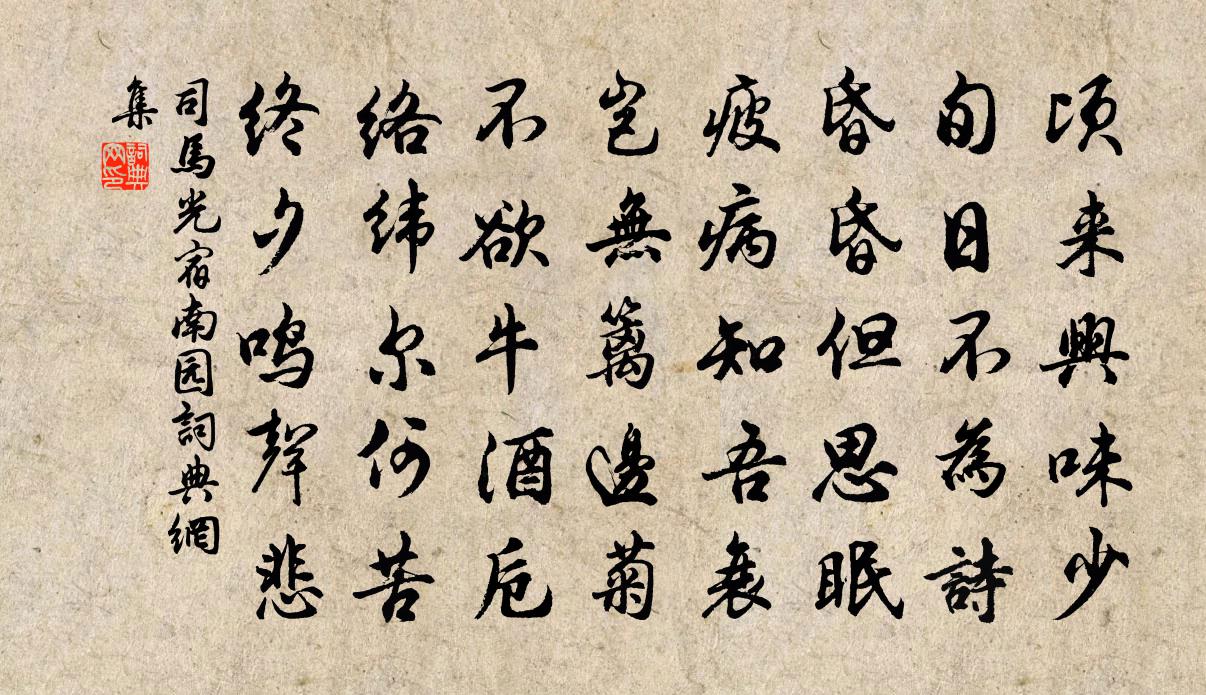 頃来興味少
旬日不為詩
昏昏但思眠
疲病知吾衰
豈無籬邊菊
不欲牛酒卮
絡緯尔何苦
終夕鳴聲悲
司馬光宿南园詞典網
集
詞典网印